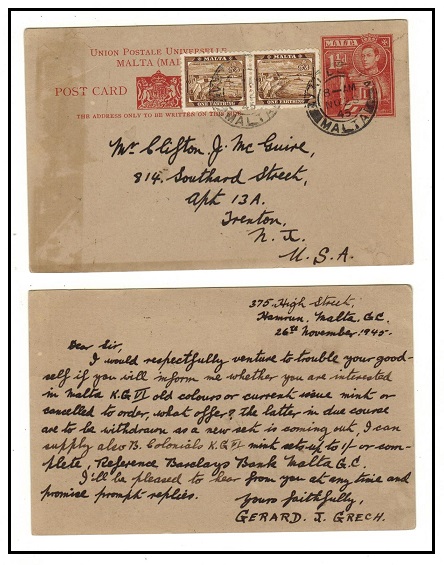 UNION POSTALE UNIVERSELLE
MALTA (MAL
POST CARD
THE ADDRESS ONLY TO BE WRITTEN ON THIS
MALTA
ONE FARTHING
MALTA
ONE FARTHING
MALTA
MALTA
1½D
8-AM
45
MALTA
Mr Clifton J. McGuire,
814. Southard Street,
Apt 13A.
Trenton,
N. J.
U.S.A.
375 High Street,
Hamrun. Malta G.C.
26th November 1945.
Dear Sir,
I would respectfully venture to trouble your good-
self if you will inform me whether you are interested
in Malta K.G. VI old colours or current issue mint or
cancelled to order, what offer? the latter in due course
are to be withdrawn as a new set is coming out, I can
supply also B. Colonials K.G. VI mint sets up to 1/- or com-
plete, Reference Barclays Bank Malta G.C.
I'll be pleased to hear from you at any time and
promise prompt replies.
Yours faithfully,
GERARD. J. GRECH.